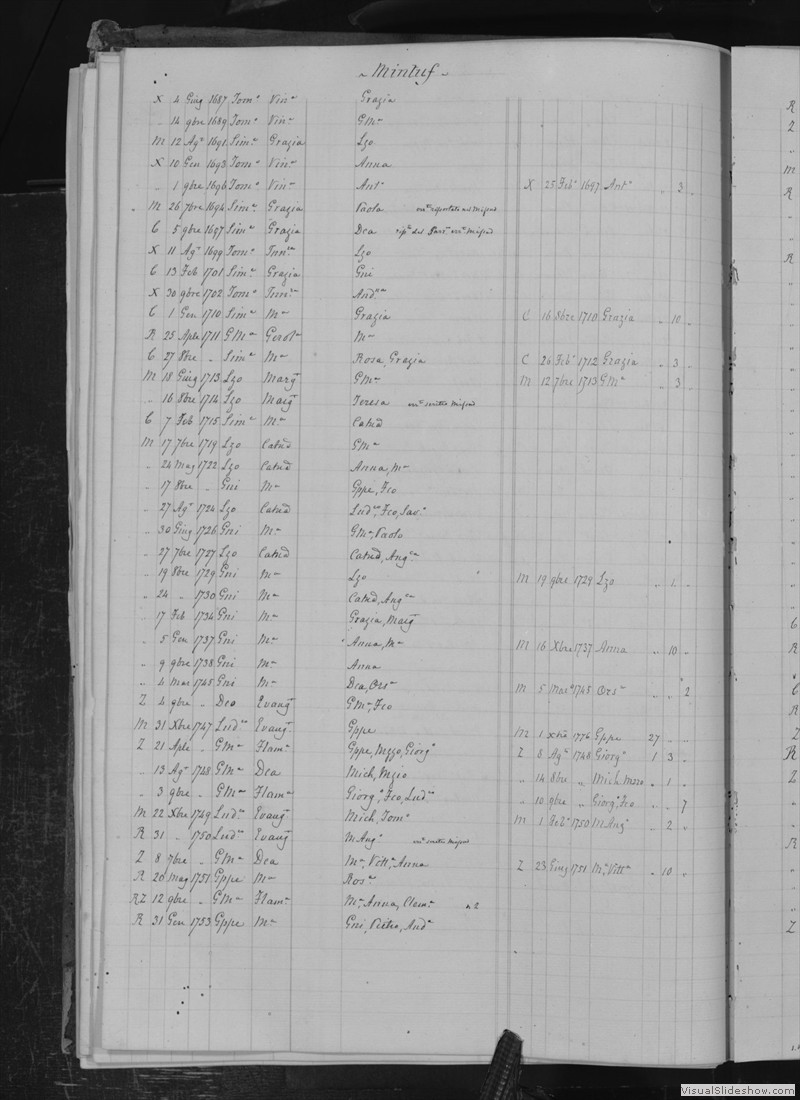 Mintuf
X 4 Giug 1687 Tomº Vinª Grazia
" 14 9bre 1689 Tomº Vinª GMª
M 12 Agº 1691 Simª Grazia Lzo
X 10 Gen 1693 Tomº Vinª Anna
" 1 9bre 1696 Tomº Vinª Antº X 25 Febº 1697 Antº " 3 "
M 26 7bre 1694 Simª Grazia Paola
C 5 9bre 1697 Simª Grazia Dea
X 11 Agº 1699 Tomº Innª Lzo
C 13 Feb 1701 Simª Grazia Gni
X 30 9bre 1702 Tomº Innª Andª
C 1 Gen 1710 Simª Mª Grazia C 16 8bre 1710 Grazia " 10 "
R 25 Aple 1711 GMª Gerolª Mª
C 27 8bre " Simª Mª Rosa, Grazia C 26 Febº 1712 Grazia " 3 "
M 18 Giug 1713 Lzo Marg GMª M 12 7bre 1713 GMª " 3
" 16 8bre 1714 Lzo Marg Teresa
C 7 Feb 1715 Simª Mª Catnd
M 17 7bre 1719 Lzo Catnd GMª
" 24 Mag 1722 Lzo Catnd Anna, Mª
" 17 8bre " Gni Mª Gppe, Fco
" 27 Agº 1724 Lzo Catnd Ludª, Fco, Savº
" 30 Giug 1726 Gni Mª GMª, Paolo
" 27 7bre 1727 Lzo Catnd Catnd, Angª
" 19 8bre 1729 Gni Mª Lzo M 19 9bre 1729 Lzo " 1 "
" 24 " 1730 Gni Mª Catnd, Angª
" 17 Feb 1734 Gni Mª Grazia, Marg
" 5 Gen 1737 Gni Mª Anna, Mª M 16 Xbre 1737 Anna " 10 "
" 9 9bre 1738 Gni Mª Anna
" 4 Mar 1745 Gni Mª Dea, Orsª M 5 Marº 1745 Orsª " " 2
Z 4 9bre " Deo Evang GMª, Fco
M 31 Xbre 1747 Ludº Evang Gppe M 1 1776 Gppe 27 " "
Z 21 Aple " GMª Flamª Gppe, Mzzo, Giorgº Z 8 Agº 1748 Giorgº 1 3 "
" 13 Agº 1748 GMª Dea Mich, Mzio " 14 8bre " Mich. Mzzo " 1 "
" 3 9bre " GMª Flamª Giorgº, Fco, Ludº " 10 9bre " Giorgº, Fco " " 7
M 22 Xbre 1749 Ludº Evang Mich, Tomº M 1 Febº 1750 MAng " 2 "
R 31 " 1750 Ludº Evang MAngº
Z 8 7bre " GMª Dea Mª, Vittª, Anna Z 23 Giug 1751 Mª, Vittª " 10 "
R 20 Mag 1751 Gppe Mª Rosª
RZ 12 9bre " GMª Flamª Mª, Anna, Clemª n 2
R 31 Gen 1753 Gppe Mª Gni, Pietro, Andª
VisualSlideshow.com